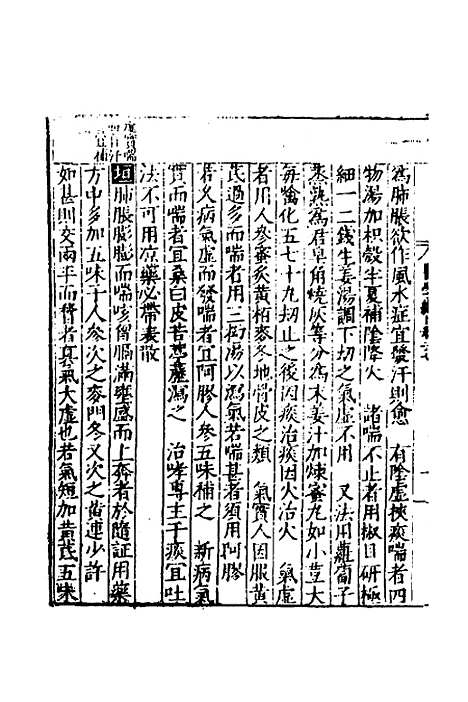 為肺脹欲作風水症宜發汗則愈　有陰虛挾痰喘者四
物湯加枳殼半夏補陰降火　諸喘不止者用椒目研極
細一二錢生姜湯調下劫之氣虛不用　又法用蘿蔔子
蒸熟為君皂角燒灰等分為末姜汁加煉蜜丸如小豆大
每噙化五七十丸劫止之後因痰治痰因火治火　氣虛
者用人參蜜炙黃栢麥冬地骨皮之類　氣實人因服黃
芪過多而喘者用三拗湯以瀉氣若喘甚者須用阿膠
若久病氣虛而發喘者宜阿膠人參五味補之　新病氣
實而喘者宜桑白皮苦葶藶瀉之　治哮專主于痰宜吐
法不可用涼藥必帶表散
垣肺脹膨膨而喘咳胷膈滿壅盛而上奔者於隨証用藥
方中多加五味子人參次之麥門冬又次之黃連少許
如甚則交兩手而瞀者真氣大虛也若氣短加黃芪五味